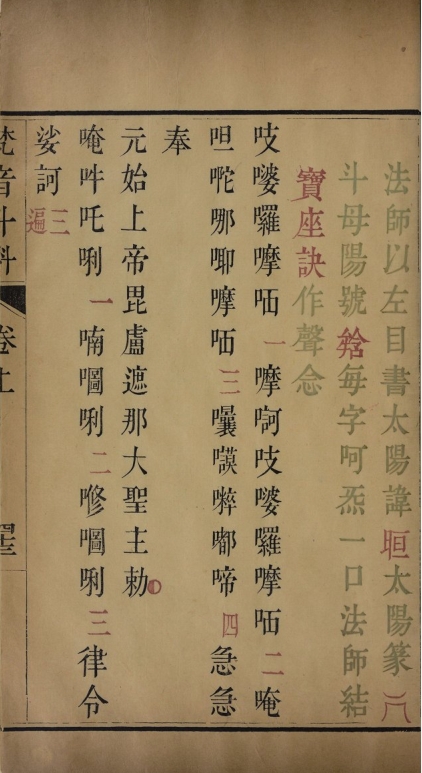 法師以左目書太陽諱晅太陽篆
斗母陽號每字呵炁一口法師結
寶座訣作聲念
吱嘙囉摩哂一摩訶吱嘙囉摩哂二唵
呾咜哪唧摩哂三囔嗼㗚嘟啼四急急
奉
元始上帝毘盧遮那大聖主勅
唵吽吒唎一喃㘕唎二嘇㘕唎三律令
娑訶三遍
梵音斗科 卷上